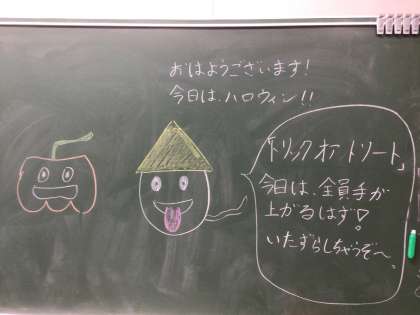 おはようございます!
今日は、ハロウィン!!
「トリック オア トリート」
今日は、全員手が
上がるはず!
いたずらしちゃうぞ〜。